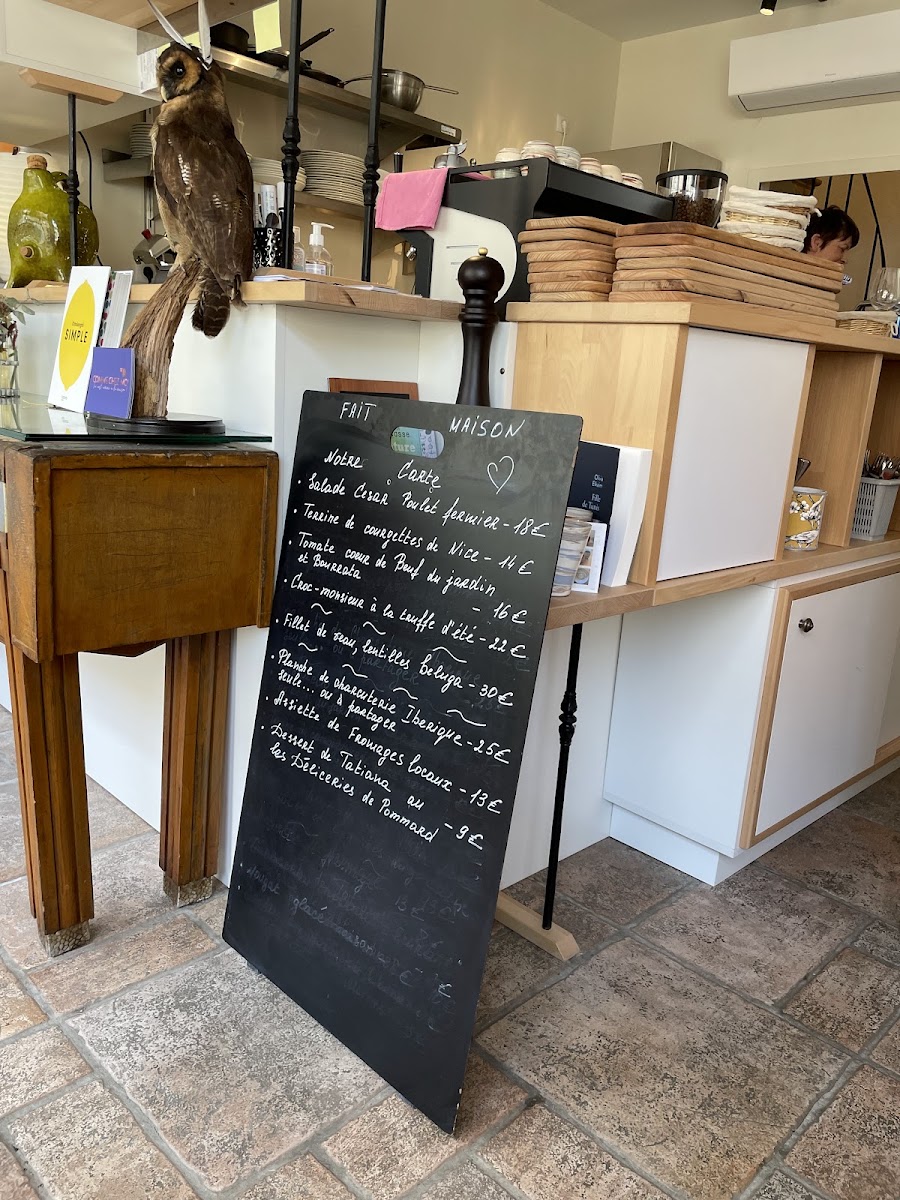 SIMPLE
FAIT MAISON
ture
Notre Carte
• Salade Cesar Poulet fermier - 18€
• Terrine de courgettes de Nice - 14€
• Tomate coeur de Bœuf du jardin
et Bourrata - 16€
• Croc-monsieur à la truffe d'été - 22€
• Fillet de veau, lentilles beluga - 30€
• Planche de charcuterie Iberique - 25€
seule... ou à partager
• Assiette de Fromages locaux - 13€
• Dessert de Tatiana ou
les Déliceries de Pommard - 9€